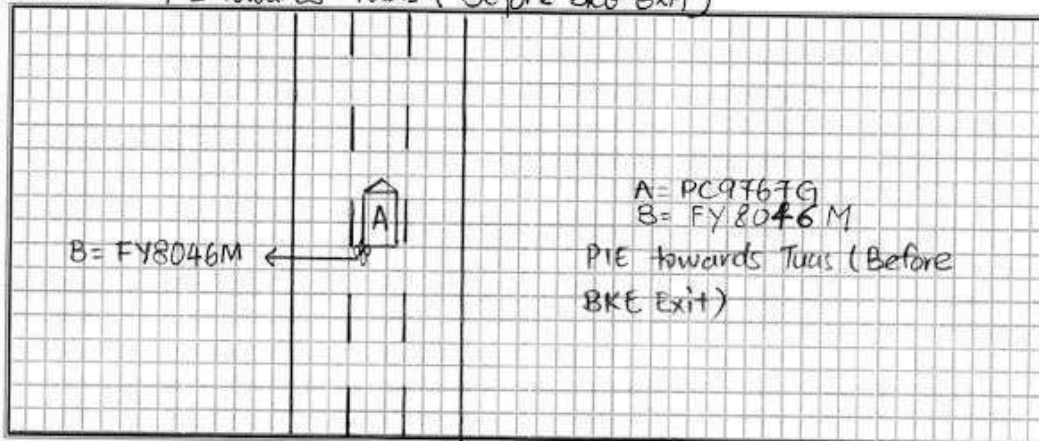 towards Tuas (Before BKE Exit)
A
B= FY8046M
A= PC9767G
B= FY8046M
PIE towards Tuas (Before
BKE Exit)